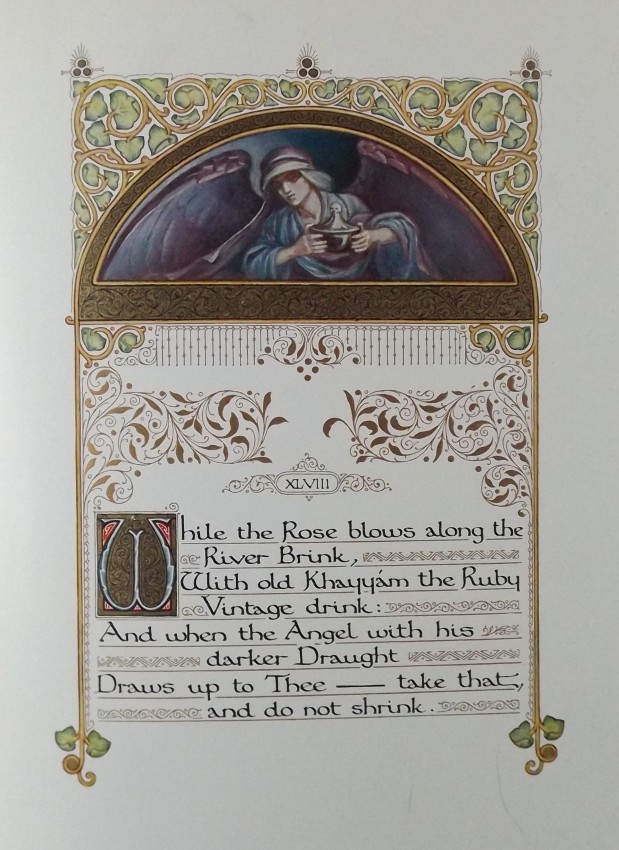 XLVIII
While the Rose blows along the
River Brink,
With old Khayyám the Ruby
Vintage drink:
And when the Angel with his
darker Draught
Draws up to Thee — take that,
and do not shrink.